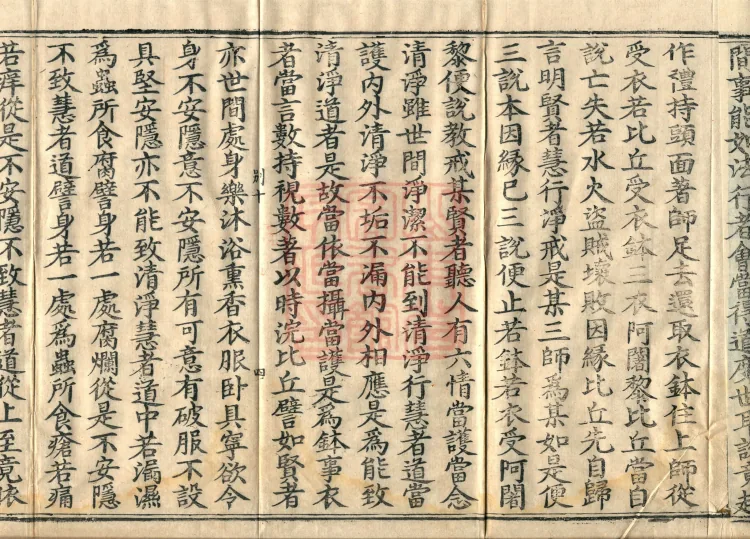 間事能如法行者會當得道度世耳說竟起
作禮持頭面著師足去還取衣鉢住上師從
受衣若比丘受衣鉢三衣阿闍黎比丘當自
說亡失若水火盜賊壞敗因緣比丘先自歸
言明賢者慧行淨戒是某三師為某如是便
三說本因緣已三說便止若鉢若衣受阿闍
黎便說教戒某賢者聽人有六情當護當念
清淨雖世間淨潔不能到清淨行慧者道當
護內外清淨不垢不漏內外相應是為能致
清淨道者是故當依當攝當護是為鉢事衣
者當言數持視數著以時浣比丘譬如賢者
別十 四
亦世間處身樂沐浴熏香衣服卧具寧欲令
身不安隱意不安隱所有可意有破服不設
具堅安隱亦不能致清淨慧者道中若漏濕
為蟲所食腐譬身若一處腐爛從是不安隱
不致慧者道譬身若一處為蟲所食瘡若痛
若痒從是不安隱不致慧者道從上至竟依